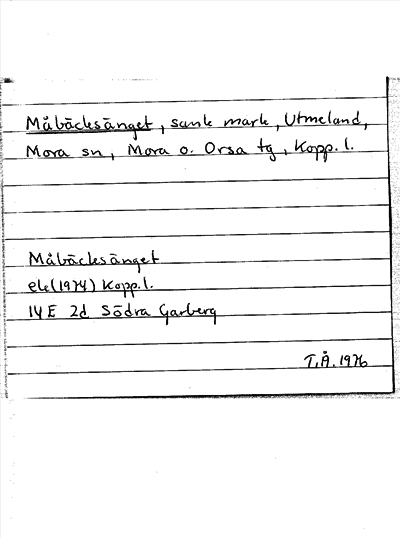 Måbäcksänget, sank mark, Utmeland,
Mora sn, Mora o. Orsa tg, Kopp. l.
Måbäcksänget
ek (1974) Kopp. l.
14E 2d Södra Garberg
T.Å. 1976